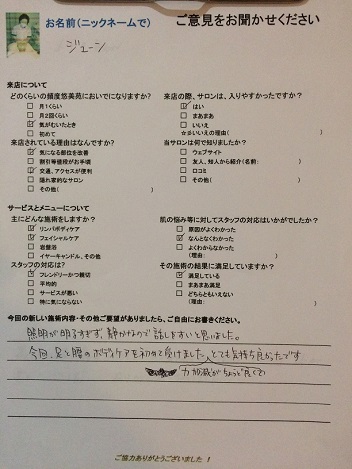 お名前(ニックネームで)
ご意見をお聞かせください
ジェーン
来店について
どのくらいの頻度悠美苑においでになりますか?
月1くらい
月2回くらい
気がむいたとき
初めて
来店されている理由はなんですか?
気になる部位を改善
割引等値段がお手頃
交通、アクセスが便利
隠れ家的なサロン
その他( )
来店の際、サロンは、入りやすかったですか?
はい
まあまあ
いいえ
☆彡いいえの理由( )
当サロンは何で知りましたか?
ウェブサイト
友人、知人から紹介(名前: )
口コミ
その他( )
サービスとメニューについて
主にどんな施術をしますか?
リンパボディケア
フェイシャルケア
岩盤浴
イヤーキャンドル、その他
スタッフの対応は?
フレンドリーかつ親切
平均的
サービスが悪い
特に気にならない
肌の悩み等に対してスタッフの対応はいかがでしたか?
原因がよくわかった
なんとなくわかった
よくわからなかった
(理由: )
その施術の結果に満足していますか?
満足している
まあまあ満足
どちらともいえない
(理由: )
今回の新しい施術内容・その他ご要望がありましたら、ご自由にお書きください。
照明が明るすぎず、静かなので話しますいと思いました。
今回、足と腰のボディケアを初めて受けました。とても気持ち良かったです
力加減がちょうど良くて
ご協力ありがとうございました !